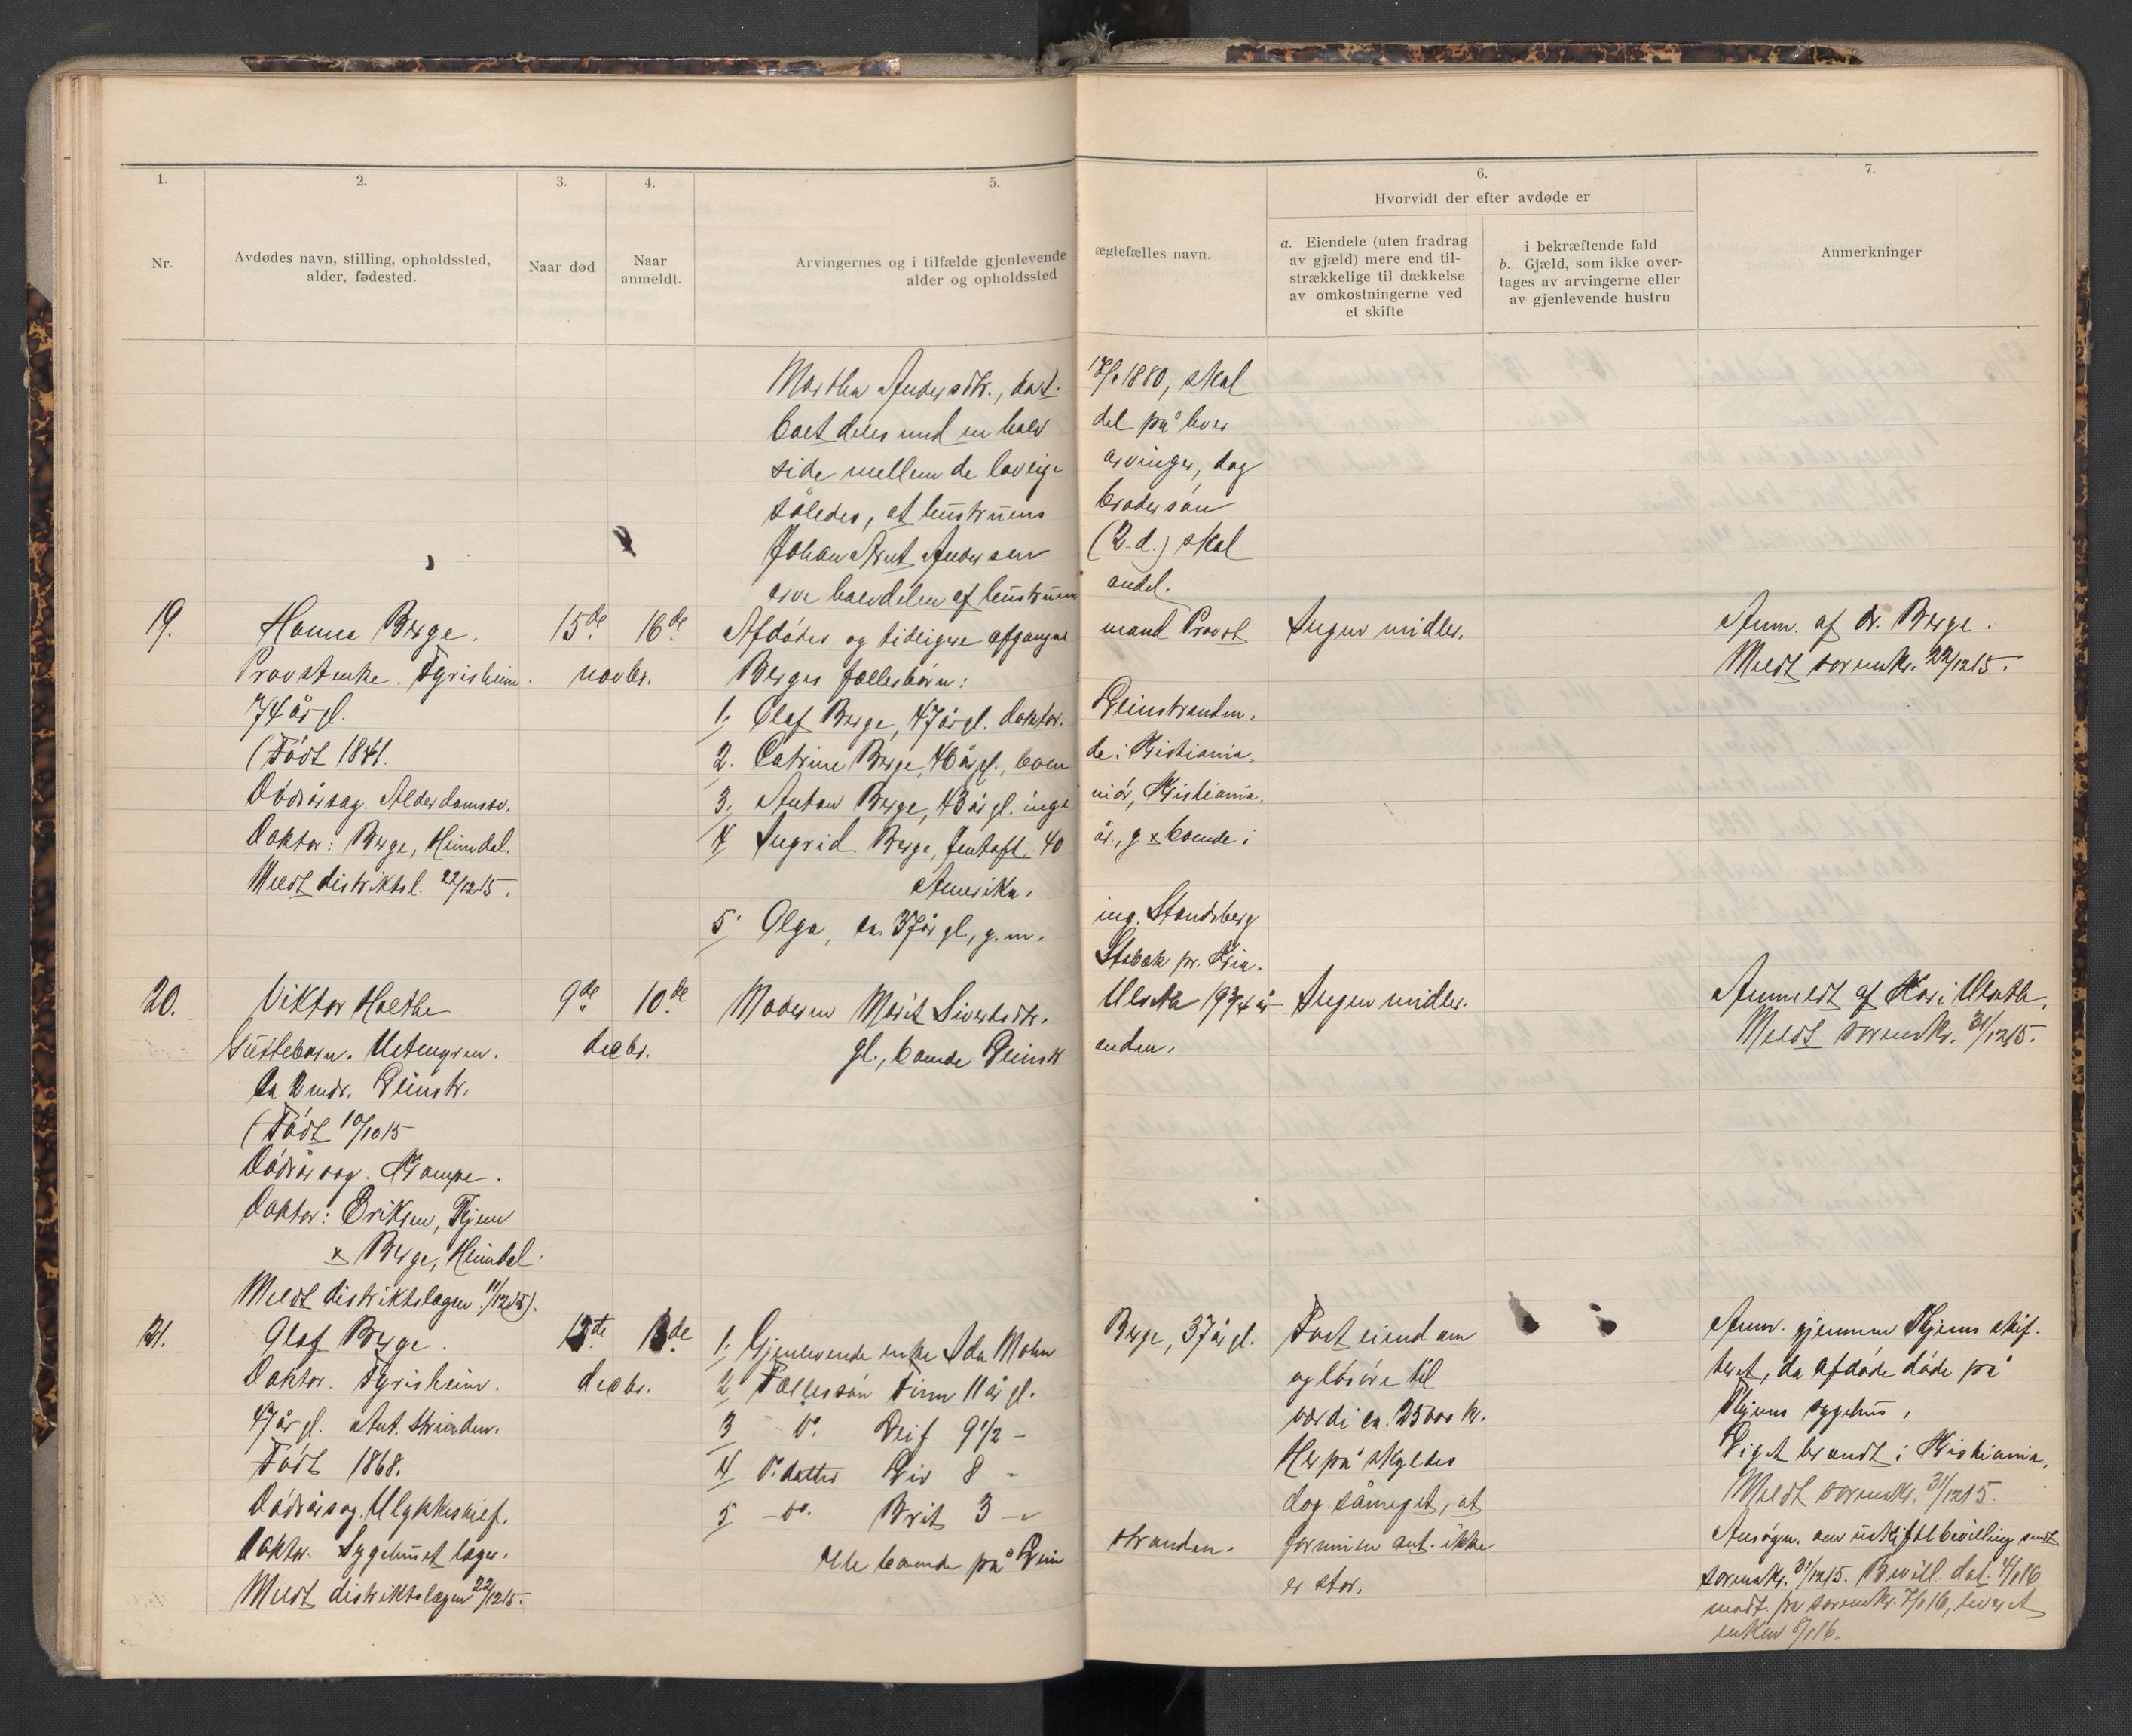 1.
2.
3.
4.
5.
6.
7.
Nr.
Avdødes navn, stilling, opholdssted,
alder, fødested.
Naar død
Naar
anmeldt.
Arvingernes og i tilfælde gjenlevende
alder og opholdssted
ægtefælles navn.
Hvorvidt der efter avdøde er
a. Eiendele (uten fradrag
av gjæld) mere end til-
strækkelige til dækkelse
av omkostningerne ved
et skifte
i bekræftende fald
b. Gjæld, som ikke over-
tages av arvingerne eller
av gjenlevende hustru
Anmerkninger
Martha Andersdtr., dat. 1880, skal
boet deles med en halv del på hver
side mellem de lovlige arvinger, dog
således, at hustruens brodersøn
Johan Arnt Andersen (2-d.) skal
arve halvdelen af hustruens andel.
19.
Hanna Berge.
Provstenke. Tyrisheim.
74 år gl.
(Født 1841.
Dødsårsag. Alderdomssv.
Doktor: Berge, Heimdal.
Meldt distriktsl. 22/12 15.
15de 16de
novbr.
Afdødes og tidligere afgangne mand Provst
Berges fællesbørn:
1. Olaf Berge, 47 år gl. doktor. Leinstranden.
2. Catrine Berge, 46 år gl., boende i Kristiania.
3. Anton Berge, 43 år gl. ingeniør, Kristiania.
4 Ingrid Berge, Jentoft 40 år, g x boende i
Amerika.
5. Olga, ca. 37 år gl., g. m. ing. Standsberg
Stabæk pr. Kria.
Ingen midler.
Anm. af dr. Berge.
Meldt sorenskr. 22/12 15.
20.
Viktor Holthe
Gutebarn. Uetengren.
Ca. 2 mdr. Leinstr.
(Født 10/10 15
Dødsårsag. Krampe.
Doktor: Eriksen, Thjem
x Berge, Heimdal.
Meldt distriktslægen 11/12 15).
9de 10de
decbr.
Moderen Marit Sivertsdtr. Ulstad 19 3/4 år
gl., boende Leinstranden.
Ingen midler.
Anmeldt af Kari Ulsth.
Meldt sorenskr. 31/12 15.
21.
Olaf Berge.
Doktor. Tyrisheim.
47 år gl. Ant. Strinden.
Født 1868.
Dødsårsag. Ulykkestilf.
Doktor. Sygehuset læger.
Meldt distriktslægen 22/12 15.
decbr.
1. Gjenlevende enke Ida Mohn Berge, 37 år gl.
2 Fællessøn Finn 11 år gl.
3 do. Leif 9 1/2 -
4 do. datter Liv 8 -
5 -do. Brit 3 -
Alle boende på Leinstranden.
Fast eiendom
og løsøre til
værdi ca. 25000 kr.
Herpå skyldes
dog såmeget, at
formuen ant. ikke
er stor.
Anm. gjennem Thjems skif-
teret, da afdøde døde på
Thjems sygehus.
Liget brændt i Kristiania.
Meldt sorenskr. 31/12 15.
Ansøgn. om uskiftebevilling sendt
sorenskr. 31/12 15. Bevill. dat. 4/1 16
modt. fra sorenskr. 7/1 16, leveret
enken 8/1 16.